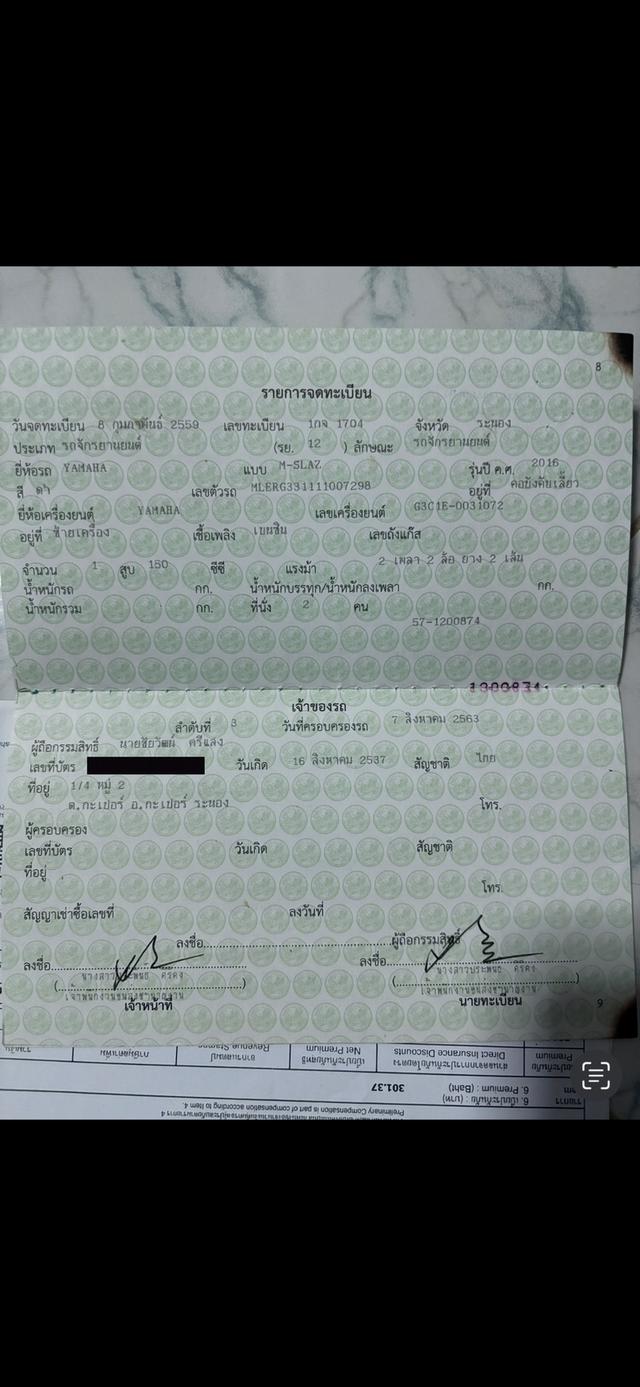 8
รายการจดทะเบียน
วันจดทะเบียน 8 กุมภาพันธ์ 2559 เลขทะเบียน 1กจ 1704 จังหวัด ระนอง
ประเภท รถจักรยานยนต์ (รย. 12 ) ลักษณะ รถจักรยานยนต์
ยี่ห้อรถ YAMAHA แบบ M-SLAZ รุ่นปี ค.ศ. 2016
สี ดำ เลขตัวรถ MLERG331111007298 อยู่ที่ คอบังคับเลี้ยว
ยี่ห้อเครื่องยนต์ YAMAHA เลขเครื่องยนต์ G3C1E-0031072
อยู่ที่ ซ้ายเครื่อง เชื้อเพลิง เบนซิน เลขถังแก๊ส
จำนวน 1 สูบ 150 ซีซี แรงม้า 2 เพลา 2 ล้อ ยาง 2 เส้น
น้ำหนักรถ กก. น้ำหนักบรรทุก/น้ำหนักลงเพลา กก.
น้ำหนักรวม กก. ที่นั่ง 2 คน
57-1200874
เจ้าของรถ
ลำดับที่ 3 วันที่ครอบครองรถ 7 สิงหาคม 2563
ผู้ถือกรรมสิทธิ์ นายชัยวัฒน์ ศรีแสง
เลขที่บัตร วันเกิด 16 สิงหาคม 2537 สัญชาติ ไทย
ที่อยู่ 1/4 หมู่ 2
ต.กะเปอร์ อ.กะเปอร์ ระนอง โทร.
ผู้ครอบครอง
เลขที่บัตร วันเกิด สัญชาติ
ที่อยู่
โทร.
สัญญาเช่าซื้อเลขที่ ลงวันที่
ลงชื่อ ผู้ถือกรรมสิทธิ์
ลงชื่อ ลงชื่อ
เจ้าหน้าที่ นายทะเบียน
9
Premium Direct Insurance Discounts Net Premium Revenue Stamps
6. เบี้ยประกันภัย : (บาท)
6. Premium : (Baht) 301.37
Preliminary Compensation is part of compensation according to Item 4.